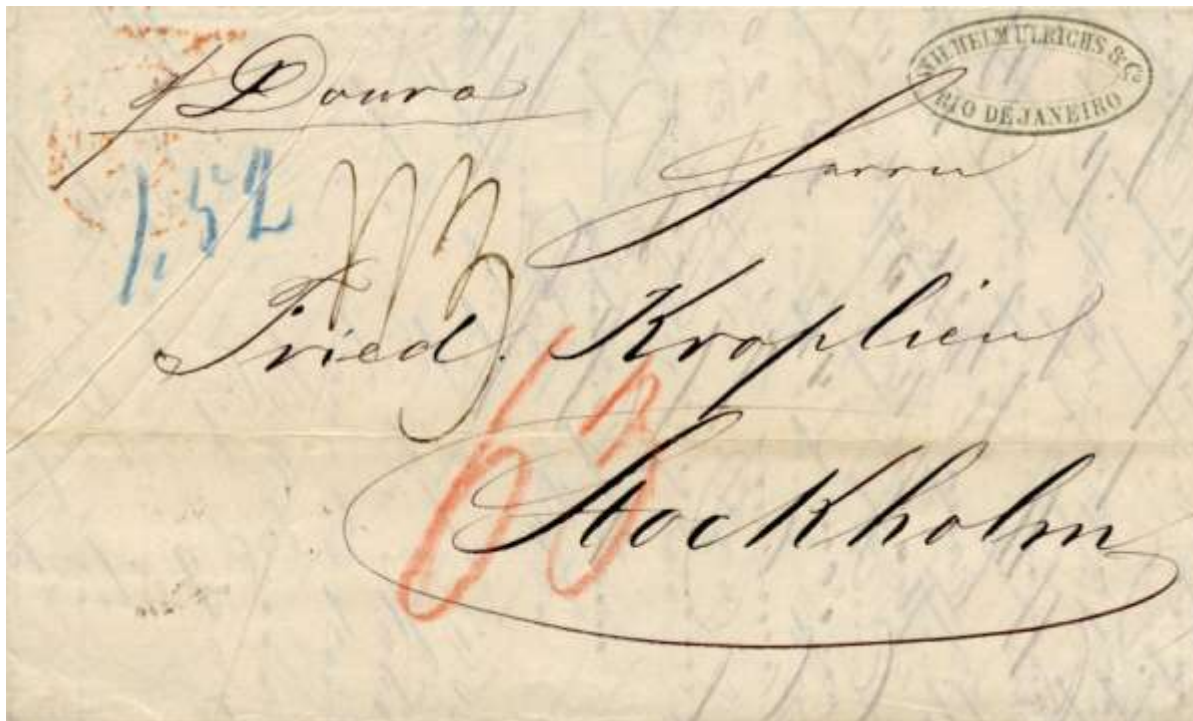 p Douro
WILHELM ULRICHS & Co
RIO DE JANEIRO
Herrn
1,52
Fried. Kroplien
63
Stockholm